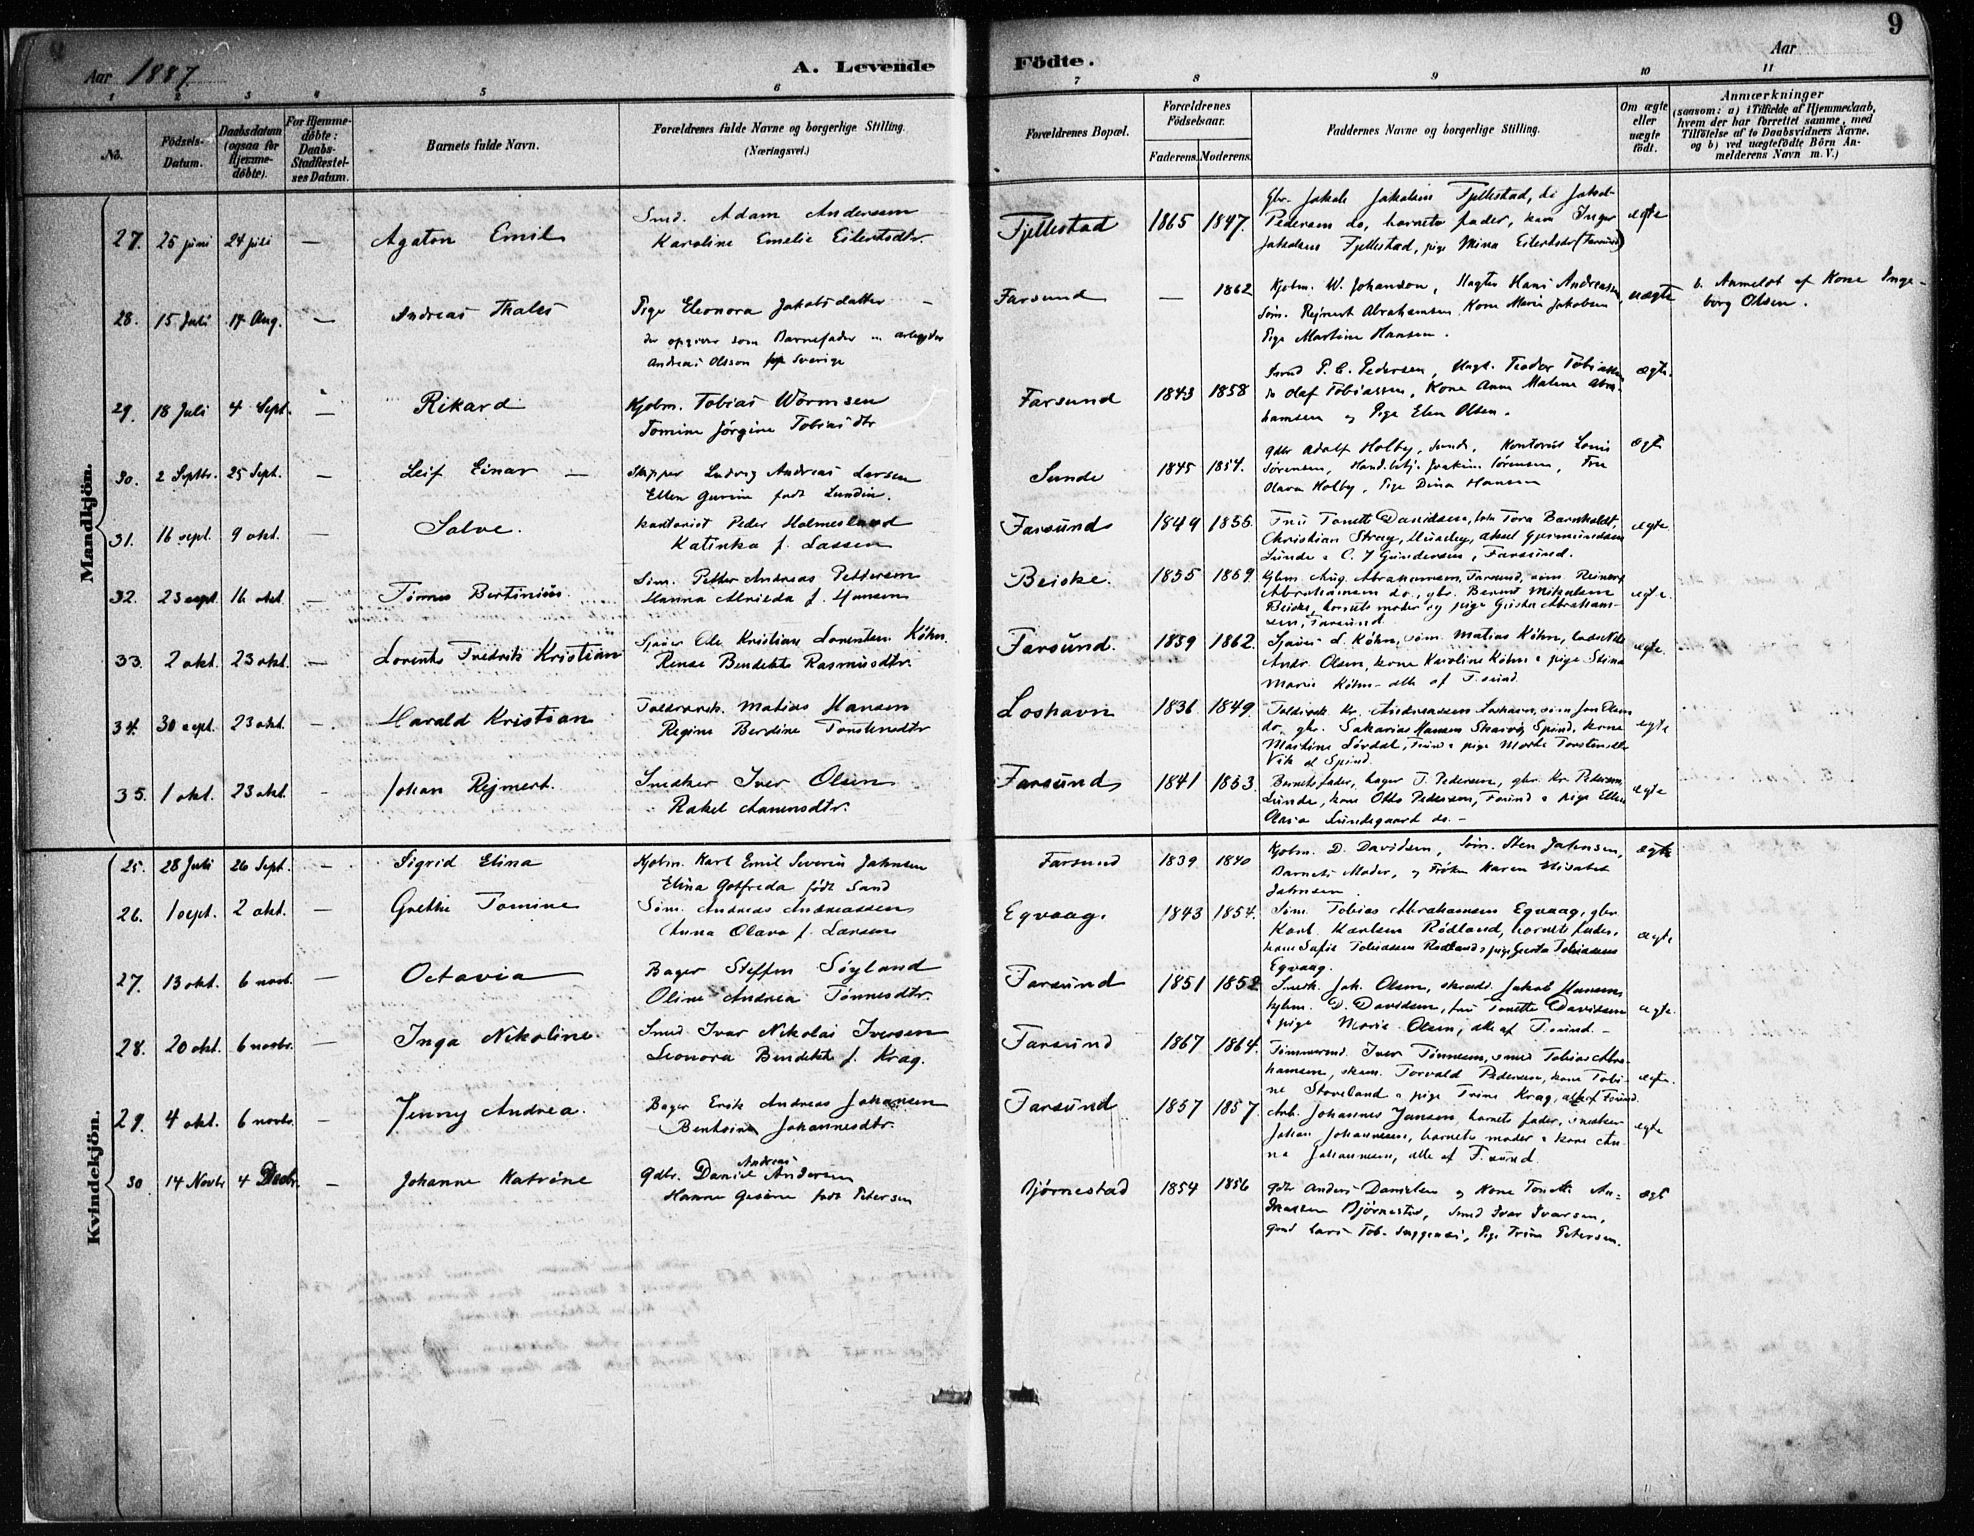 9
Aar 1887.
A. Levende
Födte.
Aar
1 2 3 4 5 6 7 8 9 10 11
No.
Födsels-
Datum.
Daabsdatum
(ogsaa for
Hjemme-
döbte).
For Hjemme-
döbte:
Daabs-
Stadfæstel-
ses Datum.
Barnets fulde Navn.
Forældrenes fulde Navne og borgerlige Stilling.
(Næringsvei.)
Forældrenes Bopæl.
Forældrenes
Födselsaar.
Faderens. Moderens.
Faddernes Navne og borgerlige Stilling.
Om ægte
eller
uægte
födt.
Anmærkninger
(saasom: a) i Tilfælde af Hjemmedaab,
hvem der har forrettet samme, med
Tilföielse af to Daabsvidners Navne.
og b) ved uægtefödte Börn An-
melderens Navn m. V.)
Mandkjön.
27. 25 juni 24 juli — Agaton Emil
Smd. Adam Andersen
Karoline Emelie Eilertsdtr.
Fjellestad 1865 1847.
Gbr. Jakob Jakobsen Fjellestad, do Jakob
Pedersen do, barnets fader, kone Inger
Jakobsen Fjellestad, pige Mina Eilertsdtr (Farsund)
egte
28. 15 Juli 14 Aug. — Andreas Thales
Pige Eleonora Jakobsdatter —
der opgiver som Barnefader arbeyder
Andreas Olsson Sverige
Farsund — 1862
Kjøbm. W. Johanson, Hans Andreassen,
Søm. Rejnert Abrahamsen, Kone Marie Jakobsen
Pige Martine Hansen.
uægte
b. Anmeldt af Kone Inge-
borg Olsen.
29. 18 Juli 4 Sept. — Rikard
Kjøbm. Tobias Wormsen
Tomine Jørgine Tobiasdtr
Farsund 1843 1858
Smd P. C. Pedersen, Ungk. Teodor Tobiassen
do Olaf Tobiassen, Kone Anne Malene Abra-
hamsen og Pige Elen Olsen.
ægte.
30. 2 Septbr. 25 Sept. — Leif Einar —
Skipper Ludvig Andreas Larsen
Ellen Gurine født Lundin.
Sunde 1845 1854.
Gdbr Adolf Holby, Sunde, Kontorist Louis
Sørensen, Joakim Sørensen, Fru
Olava Holby, Pige Dina Hansen
ægte
31. 16 sept. 9 okt. — Salve.
Kontorist Peder Holmesland
Katinka f. Lassen
Farsund 1849 1855.
Fru Tonette Davidsen, Tora Barnholdt,
Christian Stray, Huseby, Aksel Gjermundsen
Lunde & C. J Gundersen, Farsund.
egte
32. 23 sept. 16 okt. — Tønnes Bertinius.
Søm. Petter Andreas Pettersen
Hanna Alvilda f. Hansen
Beiske. 1855 1859.
Kjbm. Aug. Abrahamsen, Farsund, søm. Reinert
Abrahamsen do., gbr. Bernt Mikalsen
Beiske, barnets moder og pige Giska Abraham-
sen, Farsund
egte
33. 2 okt. 23 okt. — Lorents Fredrik Kristian
Sjauer Ole Kristian Lorentsen Köhn
Rense Bendikte Rasmusdtr.
Farsund. 1859 1862.
Sjauer L. Köhn, søm. Matias Köhn, lods Nils
Andr. Olsen, kone Karoline Köhn & pige Stina
Marie Köhn — alle af F.sund.
egte.
34. 30 sept. 23 okt. — Harald Kristian
Toldroersk. Matias Hansen
Regine Berdine Torstensdtr
Loshavn 1836 1849
Toldroersk. Kr. Andreassen Loshavn, søm Jon Olsen
do, gbr. Sakarias Hansen Skarvøy, Spind, kone
Martine Lørdal, F.sund & pige Marte Torstensdtr
Vik af Spind.
egte
35. 1 okt. 23 okt. - Johan Rejmert.
Snedker Iver Olsen
Rakel Aanensdtr.
Farsund 1841 1853.
Barnets fader, bager T. Pedersen, gbr. Kr. Pedersen
Lunde, kone Otto Pedersen, F.sund & pige Ellen
Olava Lundegaard do. —
egte
Kvindekjön.
25. 28 Juli 26 Sept. — Sigrid Elina
Kjøbm. Karl Emil Severin Jahnsen
Elina Gotfreda født Sand
Farsund 1839 1840
Kjøbm. D. Davidsen, Søm. Sten Jahnsen,
Barnets Moder, og Frøken Karen Elisabet
Jahnsen
ægte
26. 1 sept. 2 okt. — Grethe Tomine
Søm. Andreas Andreassen
Anna Olava f. Larsen
Eqvaag. 1843 1854.
Søm. Tobias Abrahamsen Eqvaag, gbr.
Karl Karlsen Rødland, barnets fader,
kone Sofie Tobiassen Rødland & pige Gusta Tobiassen
Eqvaag.
ægte
27. 13 okt. 6 novbr. — Octavia
Bager Steffen Søyland
Oline Andrea Tønnesdtr.
Farsund 1851 1852
Snedk. Joh. Olsen, skræd. Jakob Hansen,
kjbm. D. Davidsen, fru Tonette Davidsen
& pige Marie Olsen, alle af F.sund. —
egte.
28. 20 okt. 6 novbr. — Inga Nikoline.
Smed Ivar Nikolai Iversen
Leonora Bendikte f. Krag.
Farsund 1867 1864.
Tømmermd. Iver Tønnesen, smed Tobias Abra-
hamsen, skom. Torvald Pedersen, kone Tobi-
ne Stoveland & pige Trine Krag, alle af F.sund.
egte.
29. 4 okt. 6 novbr. — Jenny Andrea.
Bager Erik Andreas Johansen
Bentsine Johannesdtr.
Farsund 1857 1857.
Arb. Johannes Jansen, barnets fader, snedker
Johan Johannesen, barnets moder & kone An-
na Johannesen, alle af F.sund.
egte
30 14 Novbr 4 Decbr. — Johanne Katrine
Gdbr. Daniel Andreas Andersen
Hanne Gesine født Petersen
Bjørnestad 1854 1856
Gdbr Anders Danielsen og Kone Tonette An-
dreassen Bjørnestad, Smed Ivar Ivarsen,
Lars Tob. , Pige Trine Petersen.
ægte